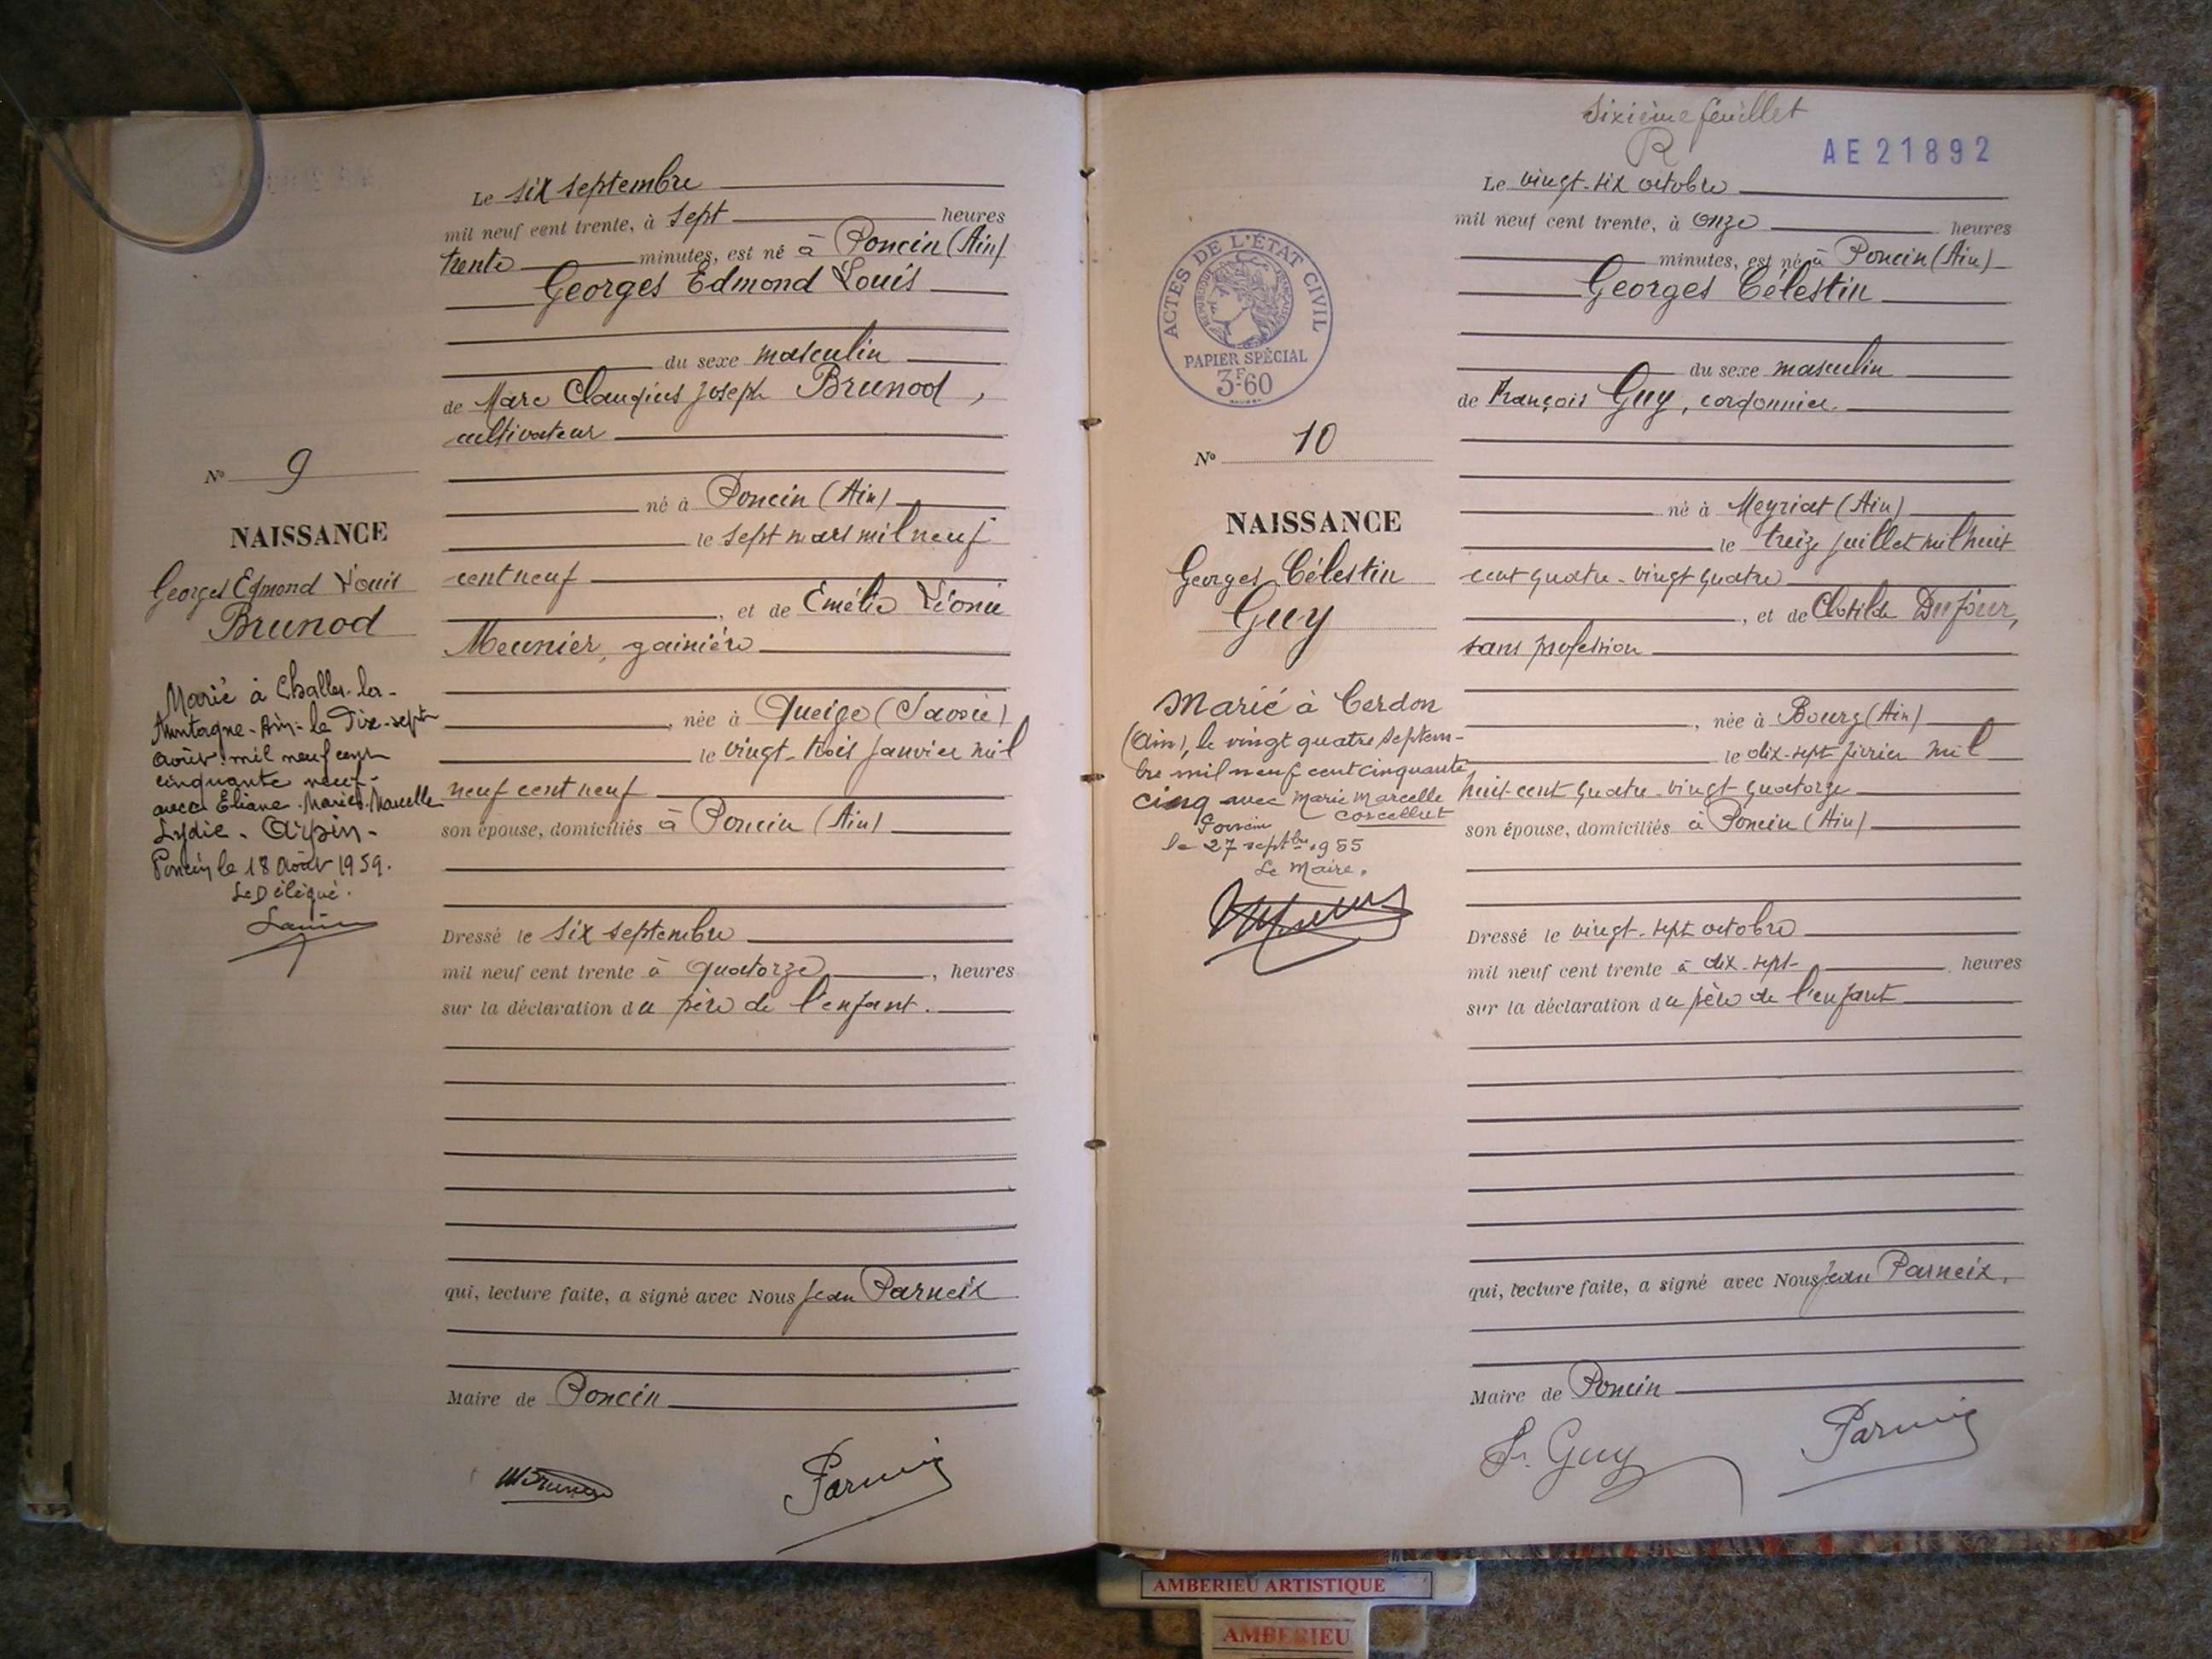 Le six septembre
mil neuf cent trente, à sept heures
trente minutes, est né à Poncin (Ain)
Georges Edmond Louis
du sexe masculin
de Marc Claudius Joseph Brunod,
cultivateur
né à Poncin (Ain)
le sept mars mil neuf
cent neuf
, et de Emélie Léonie
Meunier, gainière
, née à Queige (Savoie)
le vingt-trois janvier mil
neuf cent neuf
son épouse, domiciliés à Poncin (Ain)
Dressé le six septembre
mil neuf cent trente à quatorze, heures
sur la déclaration du père de l'enfant.
qui, lecture faite, a signé avec Nous Jean Parneix
Maire de Poncin
Parneix
No 9
NAISSANCE
Georges Edmond Louis
Brunod
Marié à Challes-la-
Montagne-Ain-le Dix-sept
août mil neuf cent
cinquante neuf-
avec Eliane-Marie-Marcelle
Lydie-Arpin-
Poncin le 18 Août 1959.
Le Délégué.
Sixième feuillet
R
AE 21892
Le vingt-six octobre
mil neuf cent trente, à onze heures
minutes, est né à Poncin (Ain)
Georges Célestin
du sexe masculin
de François Guy, cordonnier.
né à Meyriat (Ain)
le treize juillet mil huit
cent quatre-vingt quatre
, et de Clotilde Dufour,
sans profession
, née à Bourg (Ain)
le dix-sept février mil
huit-cent quatre-vingt-quatorze
son épouse, domiciliés à Poncin (Ain)
Dressé le vingt-sept octobre
mil neuf cent trente à dix-sept heures
sur la déclaration du père de l'enfant
qui, lecture faite, a signé avec Nous Jean Parneix,
Maire de Poncin
F. Guy
Parneix
ACTES DE L'ÉTAT CIVIL
RÉPUBLIQUE FRANÇAISE
PAPIER SPÉCIAL
3F60
No 10
NAISSANCE
Georges Célestin
Guy
Marié à Cerdon
(Ain), le vingt quatre septem-
bre mil neuf cent cinquante
cinq avec Marie Marcelle
Corcellut
Poncin
le 27 septbre 1955
Le Maire.
AMBERIEU ARTISTIQUE
AMBERIEU